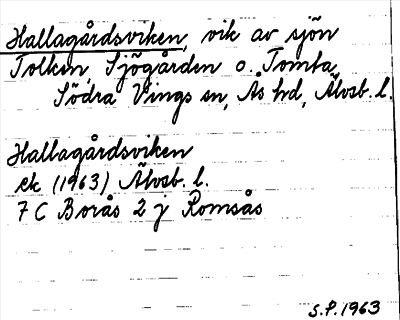 Hallagårdsviken, vik av sjön
Tolken, Sjögården o. Tomta,
Södra Vings sn, Ås hd, Älvsb. l.
Hallagårdsviken
ek (1963) Älvsb. l.
7 C Borås 2 j Romsås
S.P. 1963